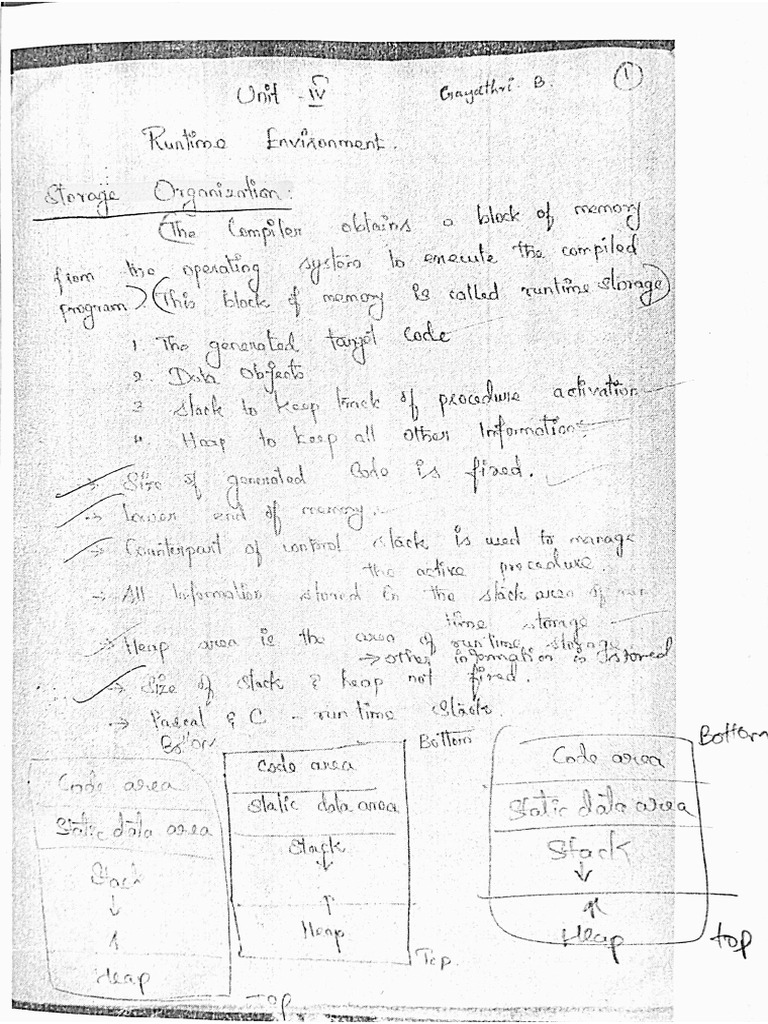 Gayathri. B. 1
Unit - IV
Runtime Environment.
Storage Organization:
(The Compiler obtains a block of memory
from the operating system to execute the compiled
program). (This block of memory is called runtime storage)
1. The generated target code
2. Data objects
3 Stack to keep track of procedure activation
4 Heap to keep all other Information.
→ Size of generated Code is fixed.
→ Lower end of memory.
→ Counterpart of control stack is used to manage
the active procedure.
→ All Information stored in the stack area of run
time storage
→ Heap area is the area of run time storage
→ other information is stored
→ Size of stack & heap not fixed.
→ Pascal & C - run time stack.
Bottom
Code area
Static data area
Stack
↓
↑
Heap
Top
Bottom
Code area
Static data area
Stack
↓
↑
Heap
Top
Bottom
Code area
Static data area
Stack
↓
↑
Heap
top